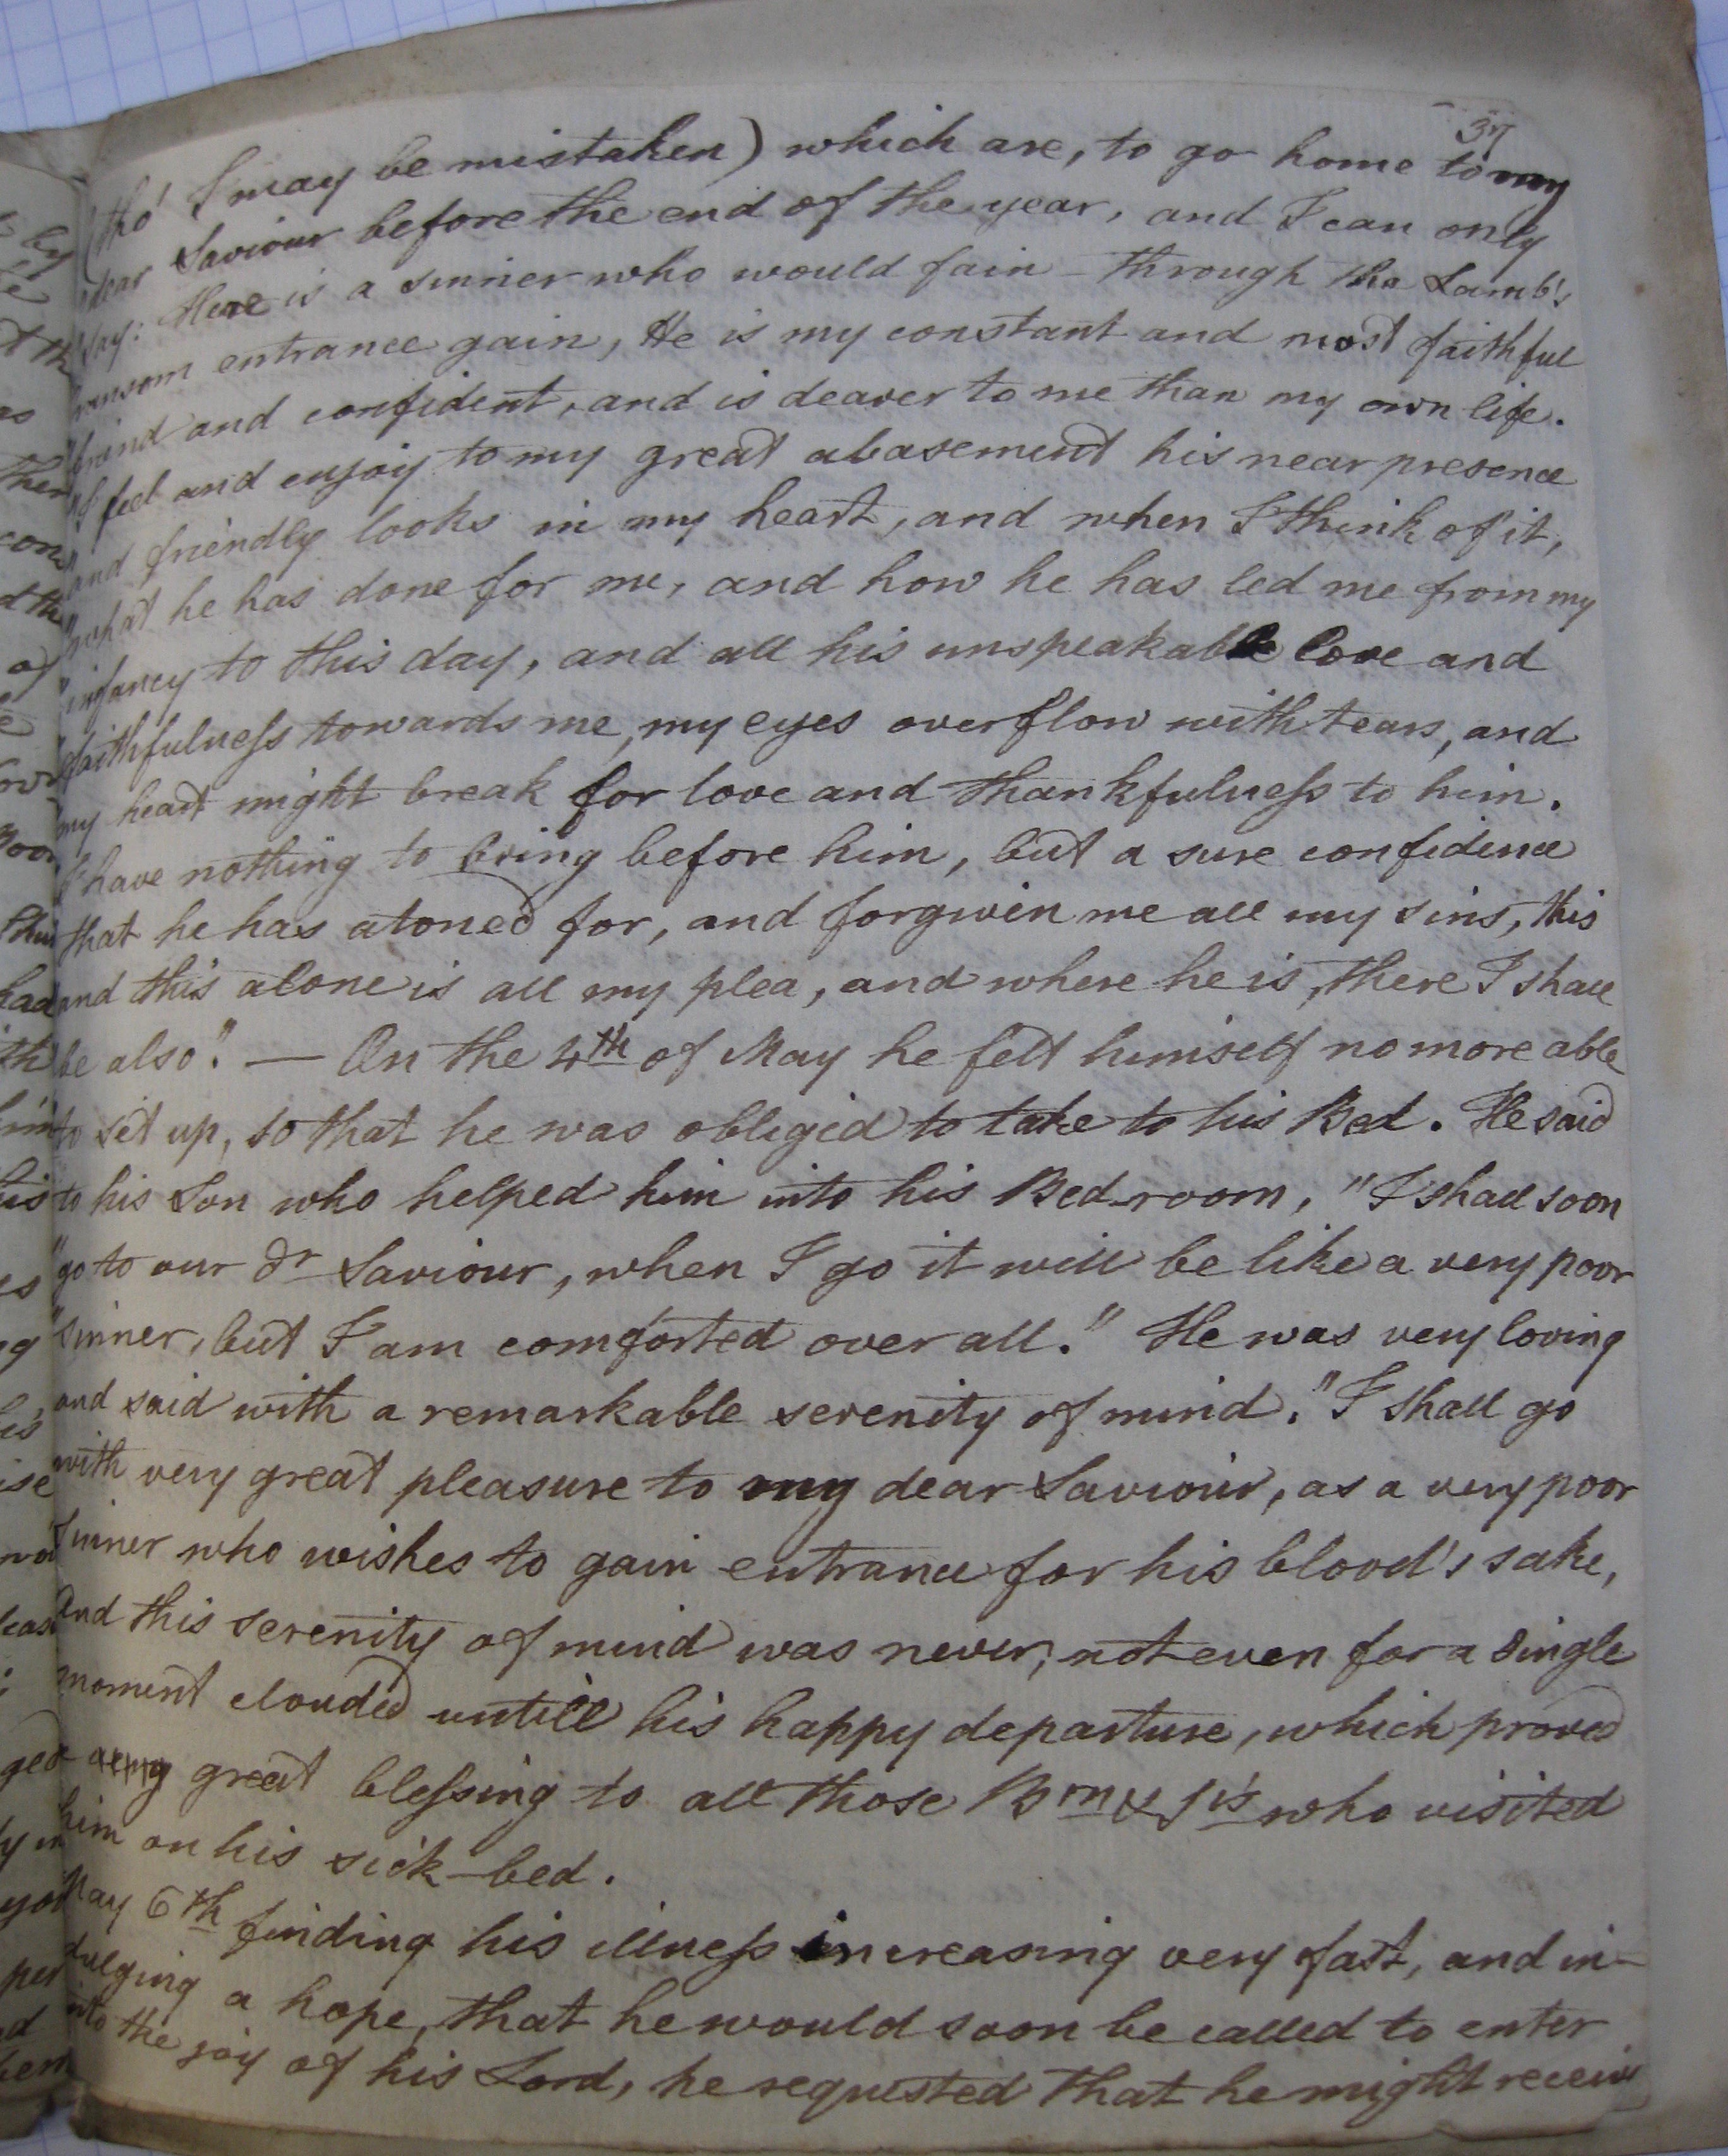 37
(tho' I may be mistaken) which are, to go home to my
dear Saviour before the end of the year, and I can only
say: Here is a sinner who would fain through the Lamb's
ransom entrance gain, He is my constant and most faithful
friend and confident, and is dearer to me than my own life.
"I feel and enjoy to my great abasement his near presence
"and friendly looks in my heart, and when I think of it,
"what he has done for me, and how he has led me from my
"infancy to this day, and all his unspeakable love and
"faithfulness towards me, my eyes overflow with tears, and
my heart might break for love and thankfulness to him.
I have nothing to bring before him, but a sure confidence
that he has atoned for, and forgiven me all my sins, this
and this alone is all my plea, and where he is, there I shall
be also." — On the 4th of May he felt himself no more able
to set up, so that he was obliged to take to his Bed. He said
to his Son who helped him into his Bed-room, "I shall soon
"go to our dr Saviour, when I go it will be like a very poor
"sinner, but I am comforted over all." He was very loving
and said with a remarkable serenity of mind. "I shall go
with very great pleasure to my dear Saviour, as a very poor
Sinner who wishes to gain entrance for his blood's sake,
and this serenity of mind was never, not even for a single
moment clouded untill his happy departure, which proved
a great blessing to all those Brn & Srs who visited
him on his sick-bed.
May 6th finding his illness increasing very fast, and in-
dulging a hope, that he would soon be called to enter
into the joy of his Lord, he requested that he might receive
by
ther
cons
d the
of
had
his